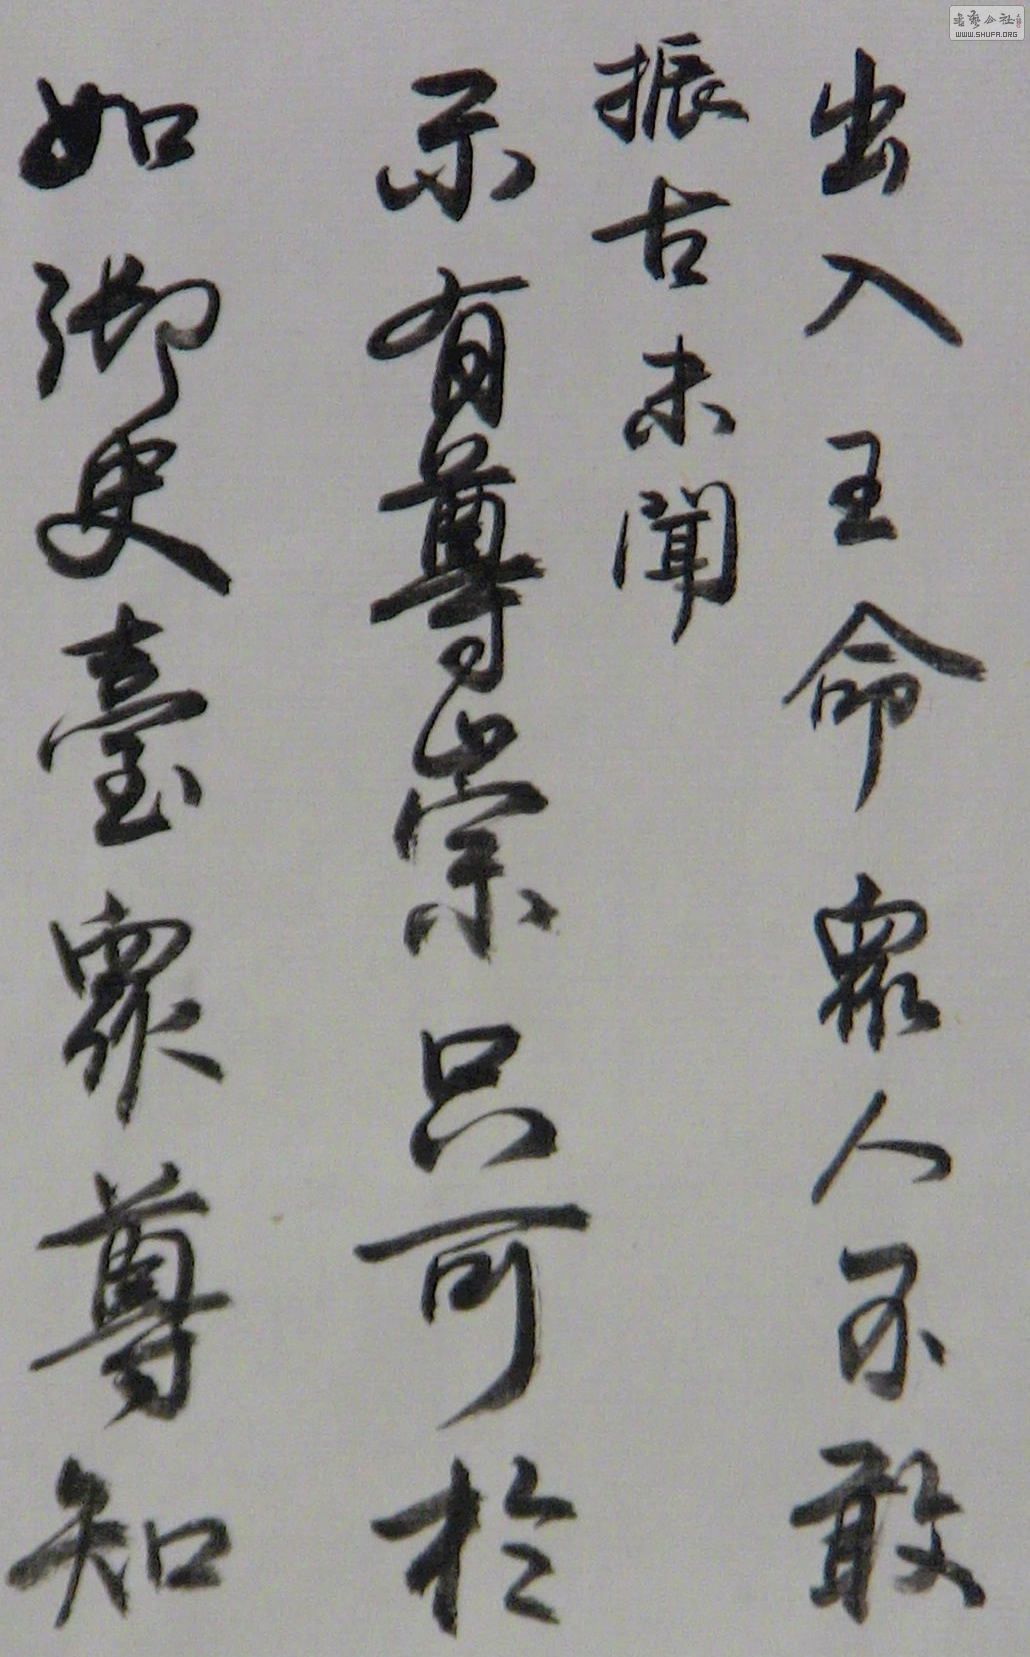 出入王命衆人不敢
振古未聞
示有尊崇只可於
如御史臺衆尊知
書藝公社
WWW.SHUFA.ORG